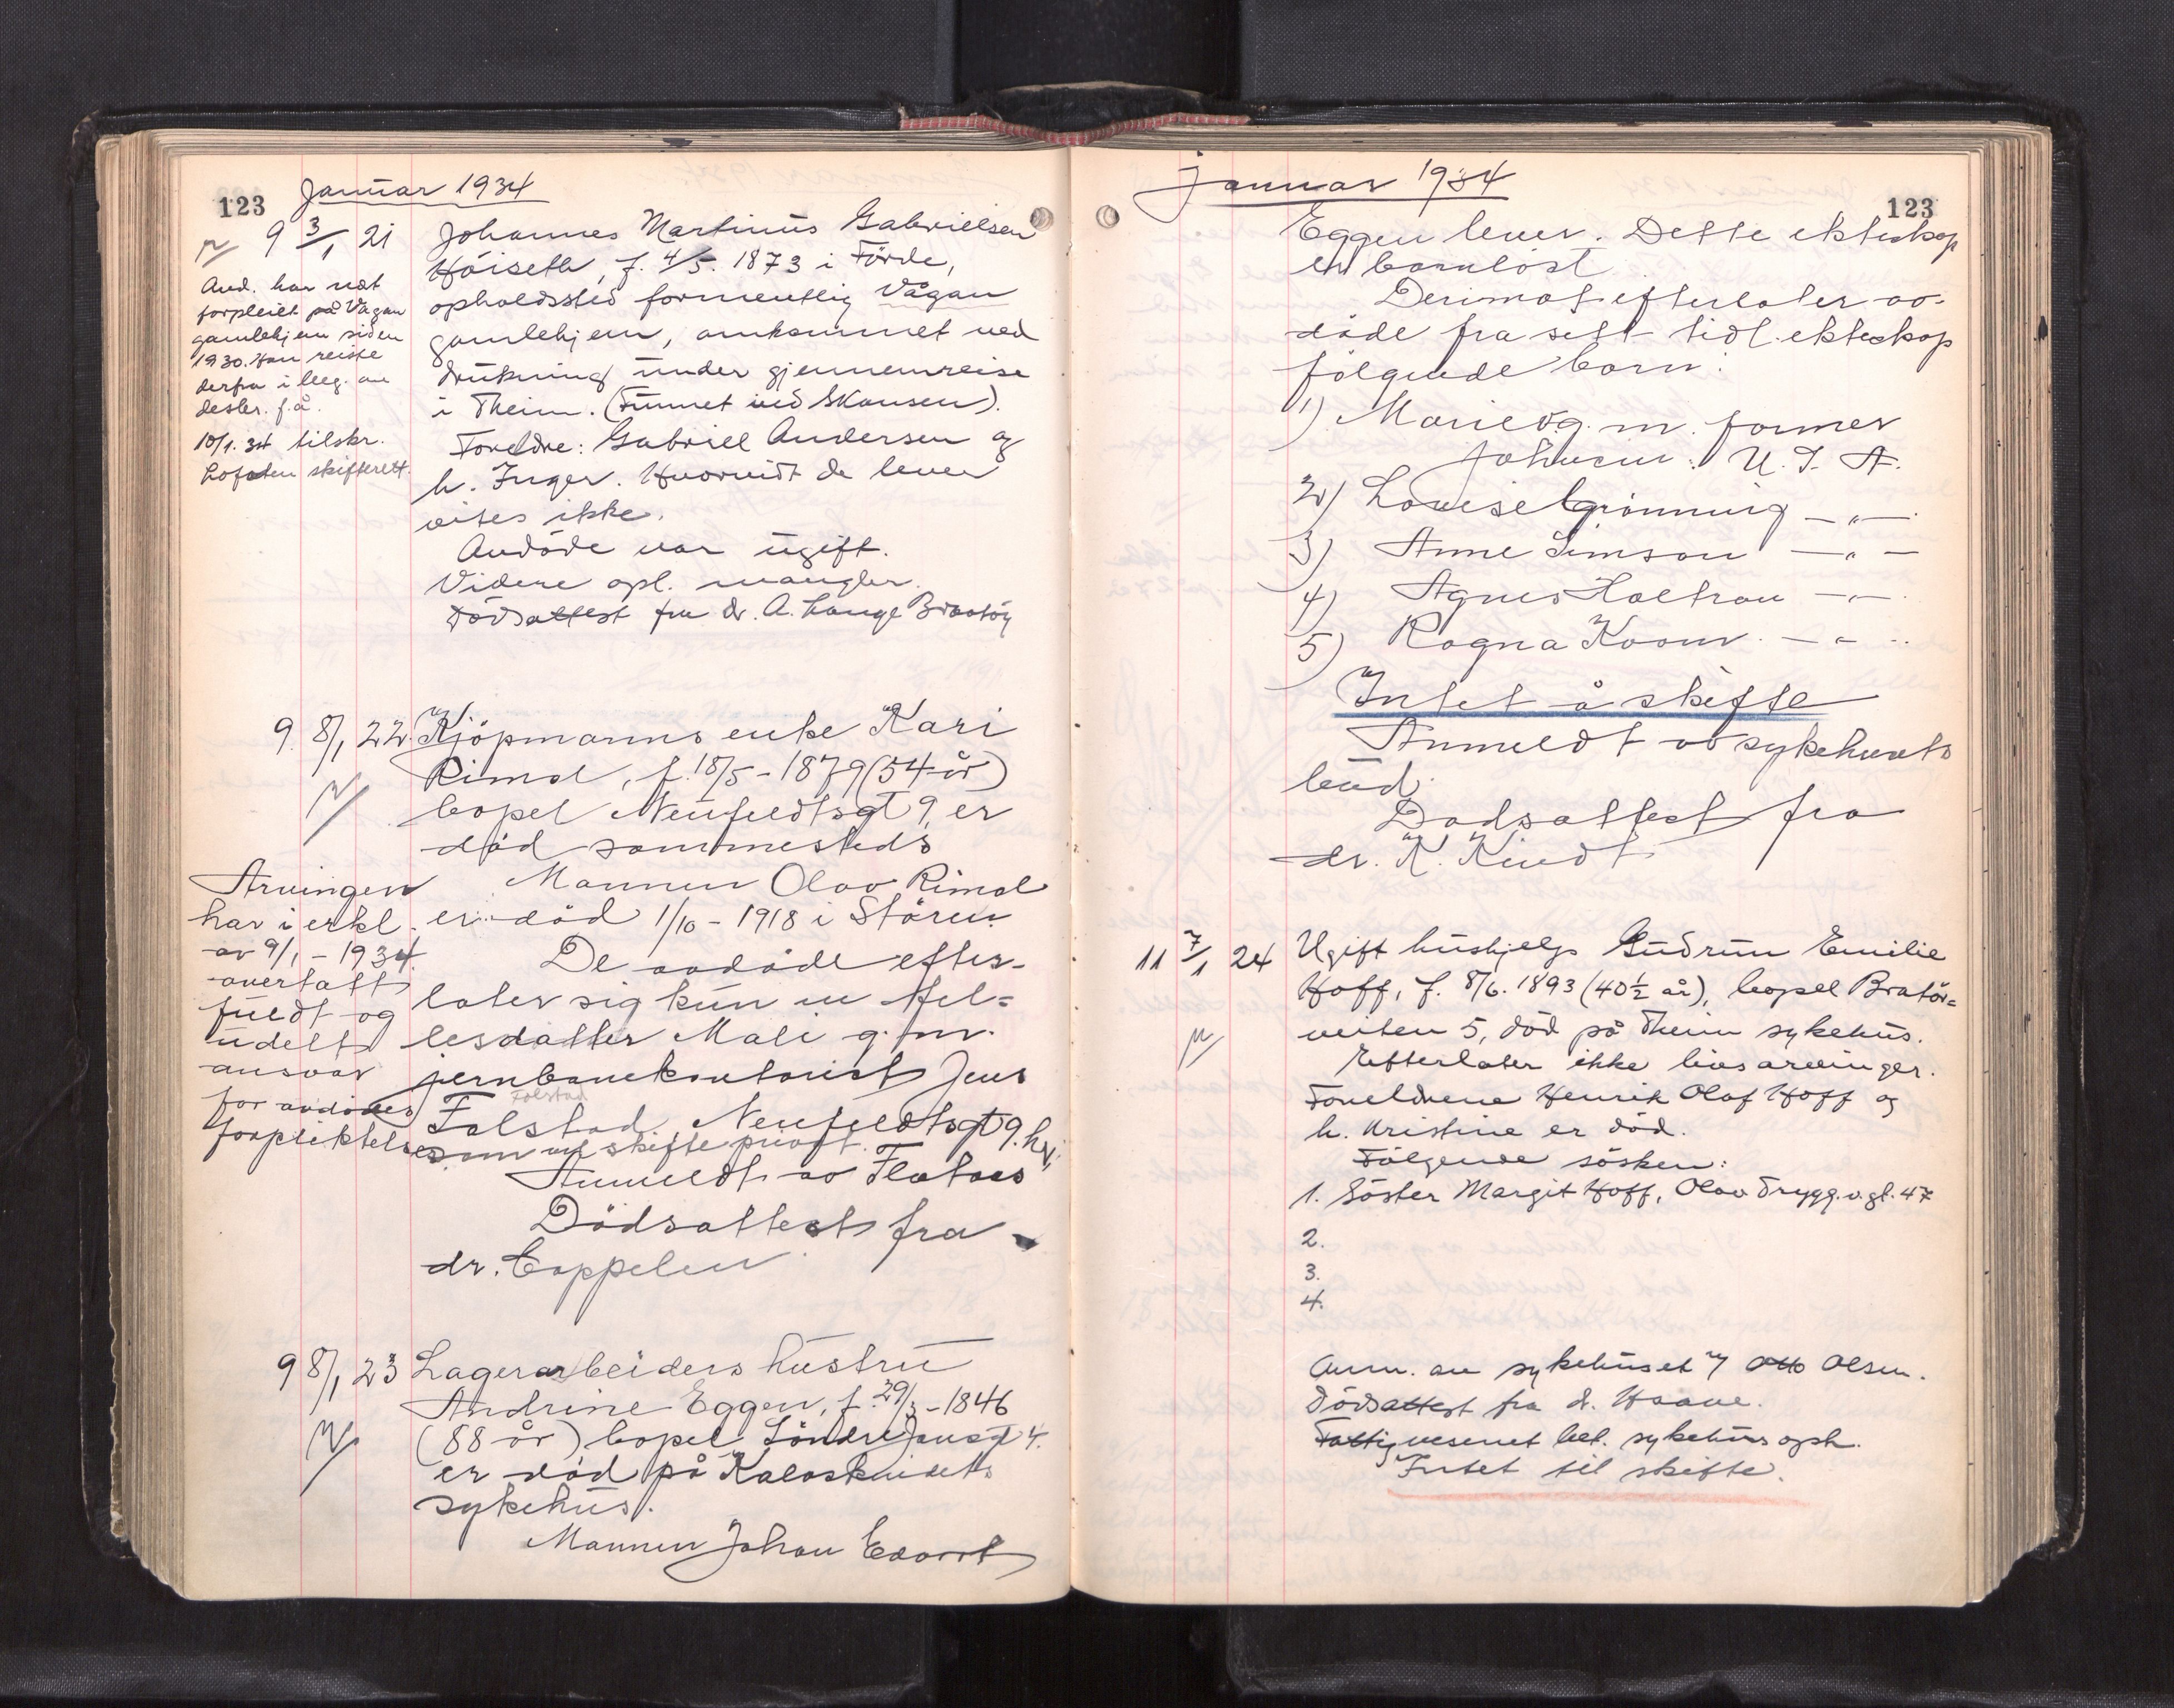 Januar 1934
123
9 3/1 21
Johannes Martinus Gabrielsen
Höiseth, f. 4/5. 1873 i Förde,
opholdssted formentlig Vågan
gamlehjem, omkommet ved
drukning under gjennemreise
i Theim. (Funnet ved Skansen).
Foreldre: Gabriel Andersen og
h. Inger. Hvorvidt de lever
vites ikke.
Avdöde var ugift.
Videre opl. mangler.
Dödsattest fra dr. A. Lange Bratöy
Avd. har vært
forpleiet på Vågan
gamlehjem siden
1930. Han reiste
derfra i beg. av
desbr. f.å.
10/1.34 tilskr.
Lofoten skifterett.
9. 8/1 22.
Kjöpmanns enke Kari
Rimol, f. 18/5-1879 (54 år)
bopel Neufeldtsgt 9, er
död sammesteds
Mannen Olav Rimol
er död 1/10-1918 i Stören.
De avdöde efter-
later sig kun en fel-
lesdatter Mali g.m.
jernbanekontorist Jens
Folstad
Folstad, Neufeldtsgt 9. hv.
som vil skifte privat.
Anmeldt av Flataas
Dödsattest fra
dr. Coppelen
Arvingen
har i erkl.
av 9/1-1934
overtatt
fuldt og
udelt
ansvar
for avdödes
forpliktelser
9 8/1 23
Lagerarbeiders hustru
Andrine Eggen, f. 29/3-1846
(88 år) bopel Söndre 4.
er död på Kalvskindets
sykehus.
Mannen Johan Edvart
Januar 1934
123
Eggen lever. Dette ekteskap
er barnlöst.
Derimot efterlater av-
döde fra sitt tidl. ekteskap
fölgende barn:
1) Marie g.m. farmer
Johnsen: U.S.A.
2) Louise Grönning — " —
3) Anne Simson — " —
4) Agnes — " —
5) Ragna — " —
Intet å skifte
Anmeldt av sykehusets
bud.
Dödsattest fra
dr. K. Kindt
11 7/1 24
Ugift hushjelp Gudrun Emilie
Hoff, f. 8/6. 1893 (40½ år), bopel Bratör=
veiten 5, död på Theim sykehus.
Efterlater ikke livsarvinger.
Foreldrene Henrik Olaf Hoff og
h. Kristine er död.
Fölgende sösken:
1. Söster Margit Hoff, Olav Trygg.v.gt. 47
2.
3.
4.
Anm. av sykehuset v/ Otto Olsen.
Dödsattest fra d. Haave.
Fattigvesenet bet. sykehusoph.
Intet til skifte.